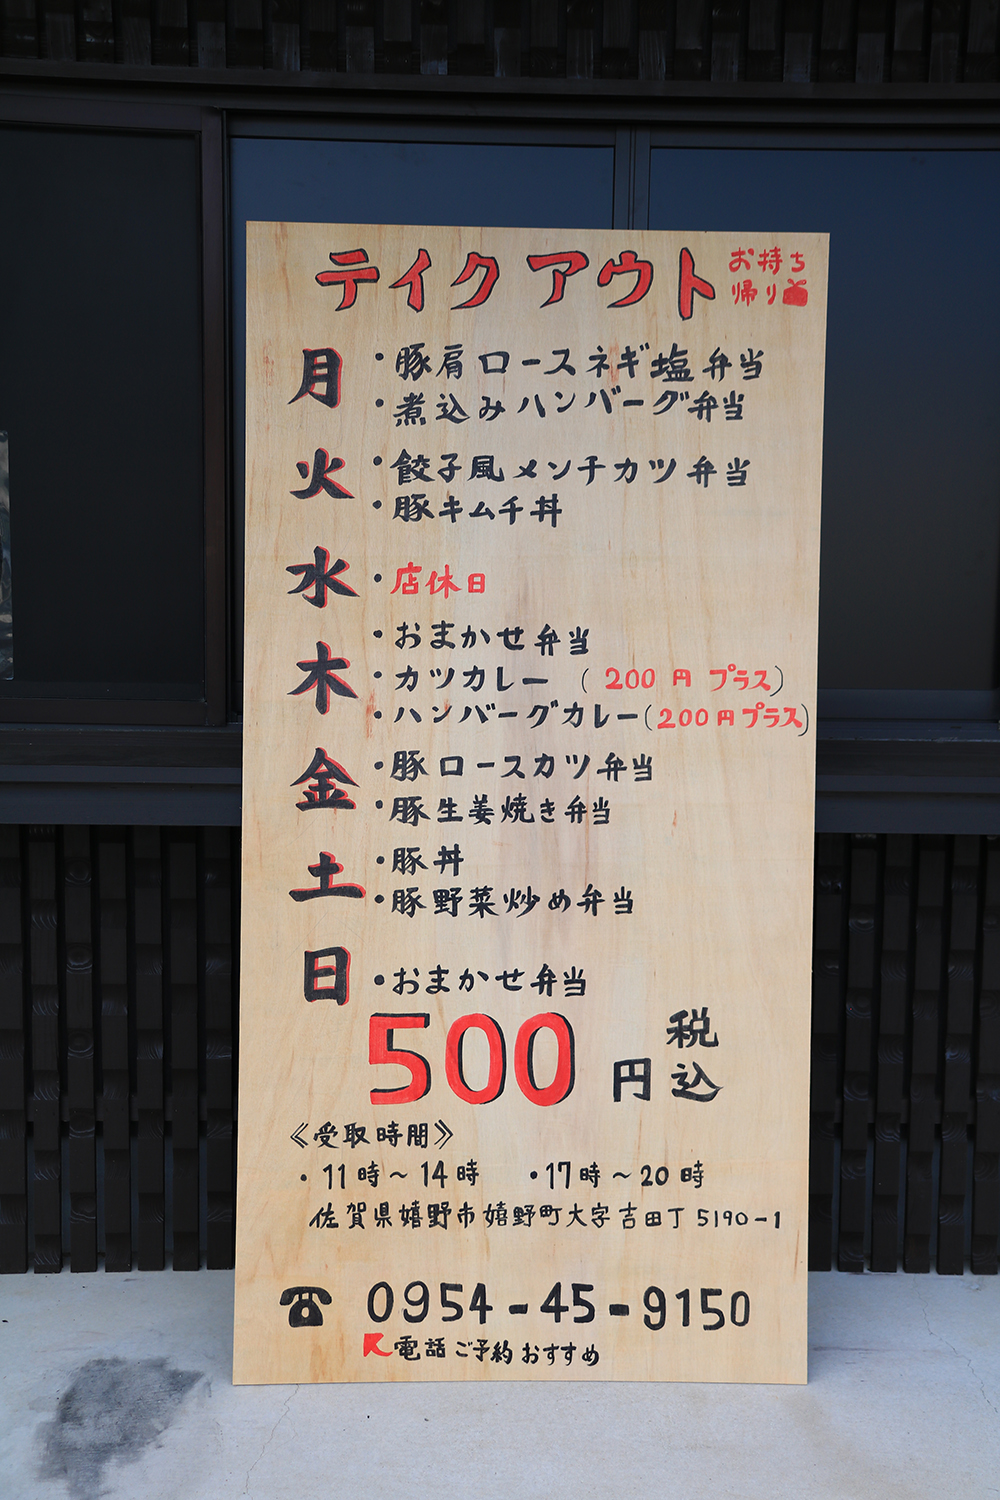 テイクアウト お持ち
帰り
月 ・豚肩ロースネギ塩弁当
・煮込みハンバーグ弁当
火 ・餃子風メンチカツ弁当
・豚キムチ丼
水 ・店休日
木 ・おまかせ弁当
・カツカレー (200円プラス)
・ハンバーグカレー(200円プラス)
金 ・豚ロースカツ弁当
・豚生姜焼き弁当
土 ・豚丼
・豚野菜炒め弁当
日 ・おまかせ弁当
500円 税込
《受取時間》
・11時～14時 ・17時～20時
佐賀県嬉野市嬉野町大字吉田丁5190-1
☎ 0954-45-9150
電話ご予約おすすめ